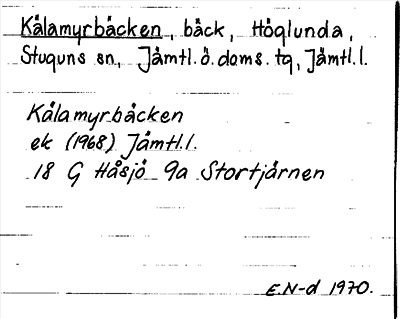 Kålamyrbäcken, bäck, Höglunda,
Stuguns sn, Jämtl. ö. doms. tg, Jämtl. l.
Kålamyrbäcken
ek (1968) Jämtl. l.
18 G Håsjö 9a Stortjärnen
E.N-d 1970.